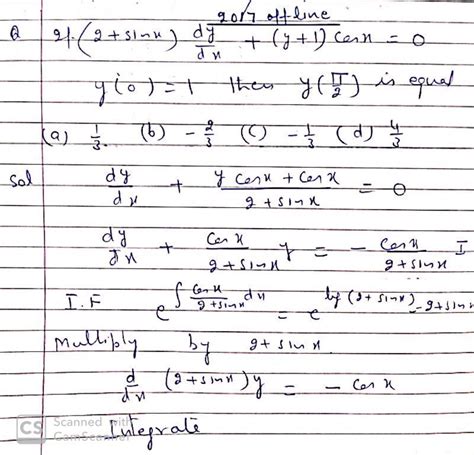 2017 offline
Q If (2+sinx) dy/dx + (y+1) cosx = 0
y(0) = 1 then y(π/2) is equal
(a) 1/3. (b) -2/3 (c) -1/3 (d) 4/3
Sol dy/dx + (y cosx + cosx)/(2+sinx) = 0
dy/dx + cosx/(2+sinx) y = - cosx/(2+sinx) I
I.F e^∫cosx/(2+sinx) dx = e^log(2+sinx) = 2+sinx
Multiply by 2+sinx
d/dx (2+sinx)y = - cosx
Integrate
CS Scanned with
CamScanner